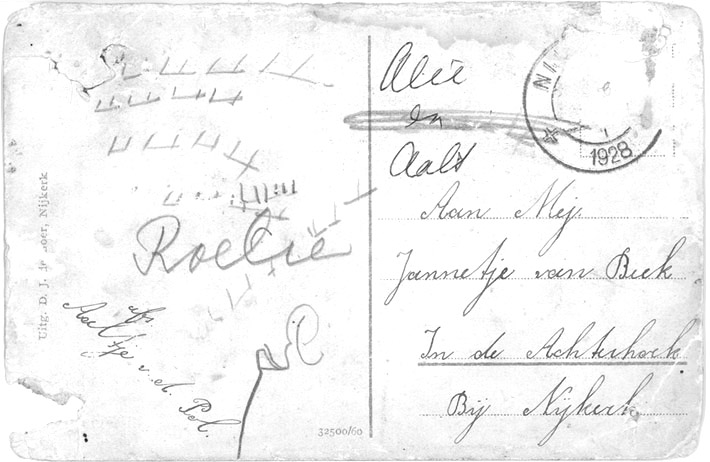 Roelie
afs.
Aaltje v. d. Pol.
Uitg. D. J. de Boer, Nijkerk
32500/60
Alie
en
Aalt
NI
1928
Aan Mej.
Jannetje van Beek
In de Achterhoek
Bij Nijkerk